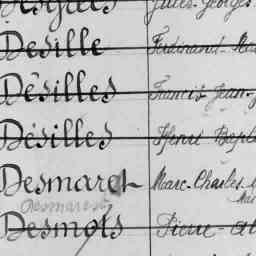 Jules-Georges
Desille Ferdinand
Désilles Francis-Jean
Désilles Henri
Desmaret Marc-Charles
Desmarest
Desmots Pierre